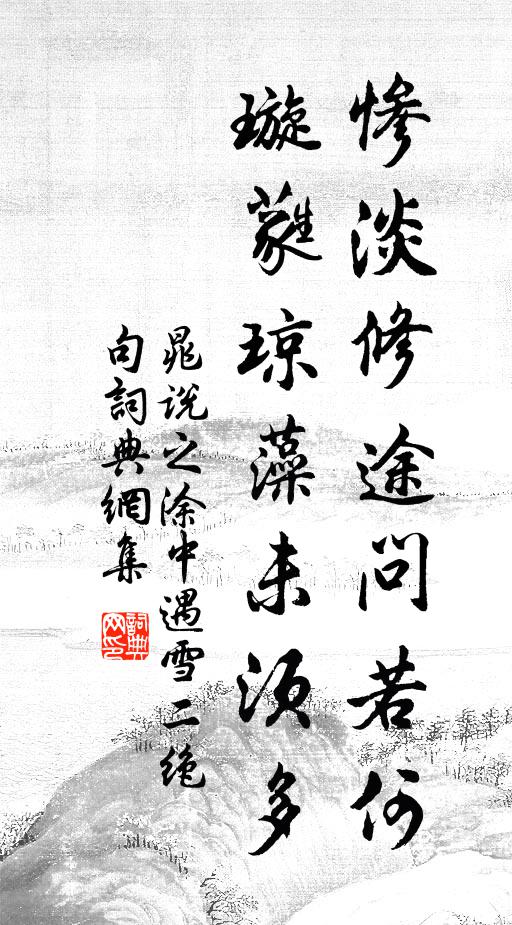 惨淡修途问若何
璇蕤琼藻未须多
晁说之涂中遇雪二绝
句词典网集
词典网印